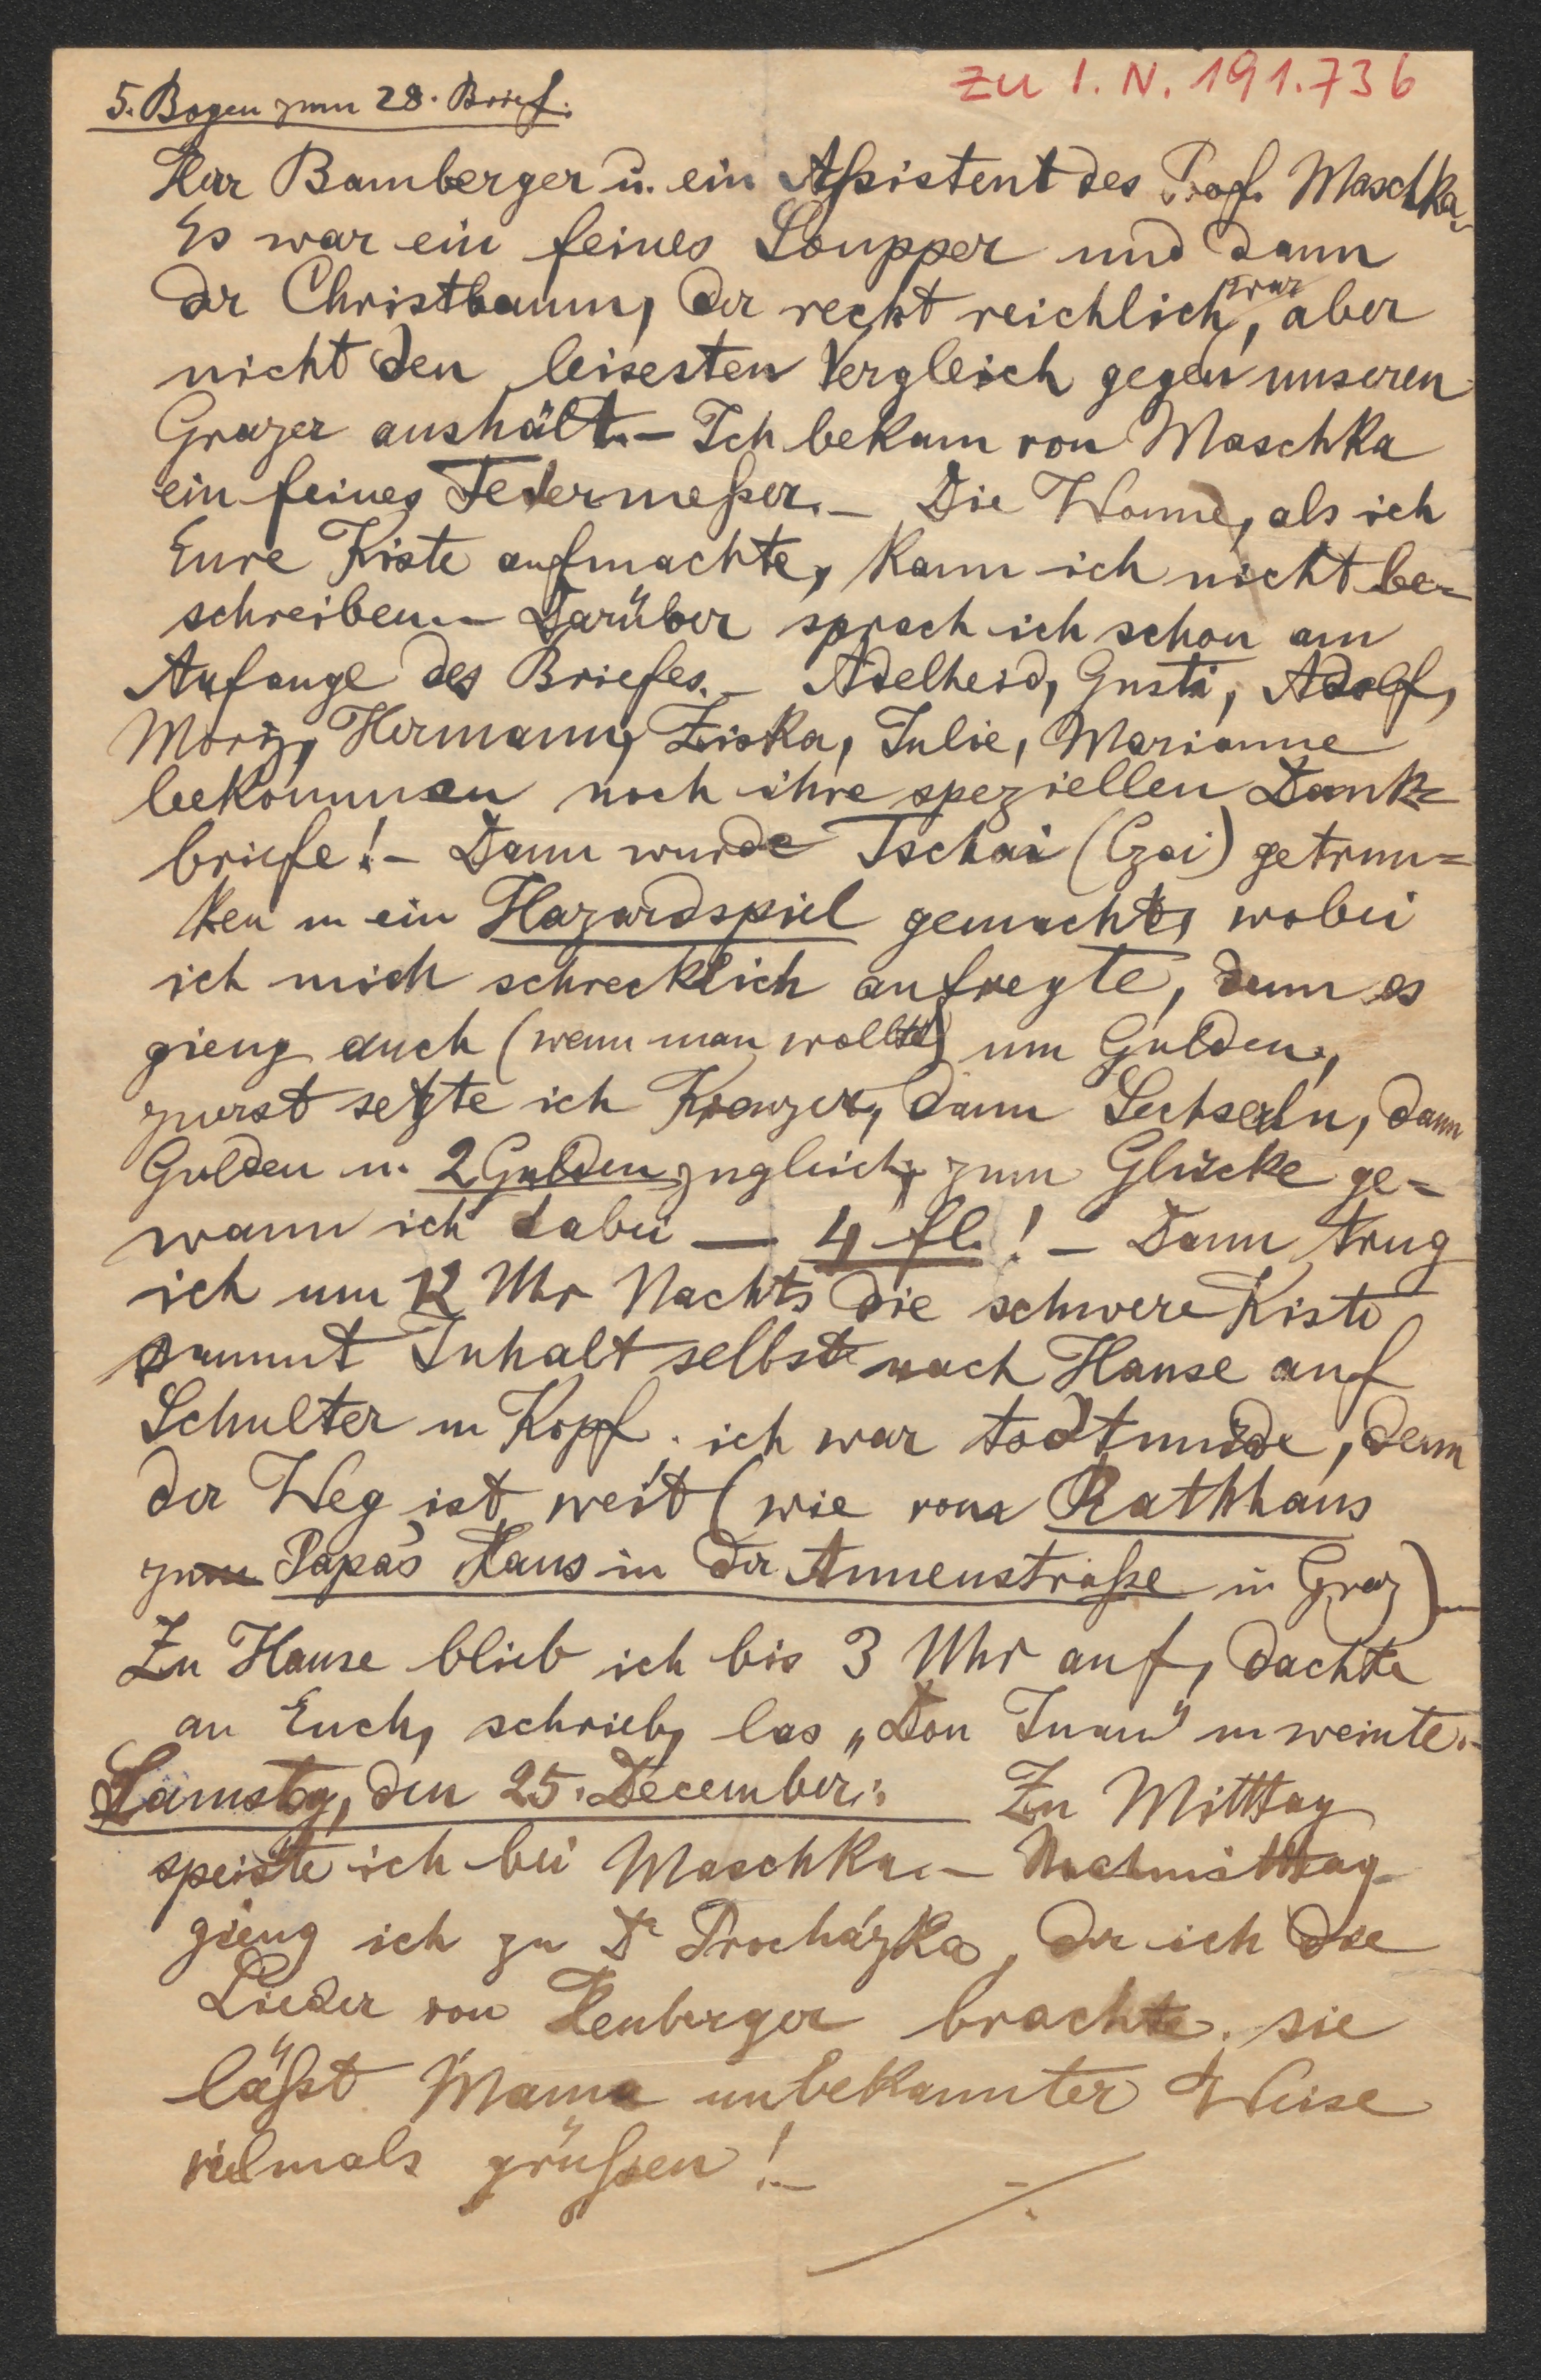 zu I. N. 191.736
5. Bogen zum 28. Brief.
Herr Bamberger u. ein Aßistent des Prof. Maschka.
Es war ein feines Soupper und dann
der Christbaum, der recht reichlich war, aber
nicht den leisesten Vergleich gegen unseren
Grazer aushält. – Ich bekam von Maschka
ein feines Federmeßer. – Die Wonne, als ich
Eure Kiste aufmachte, kann ich nicht be-
schreiben. – Darüber sprach ich schon am
Anfange des Briefes. – Adelheid, Gusti, Adolf,
Moriz, Hermann, Ziska, Julie, Marianne
bekommen noch ihre speziellen Dank=
briefe! – Dann wurde Tschai (Czai) getrun=
ken u ein Hazardspiel gemacht, wobei
ich mich schrecklich aufregte, denn es
gieng auch (wenn man wollte) um Gulden,
zuerst setzte ich Kreuzer, dann Sechserln, dann
Gulden u. 2 Gulden zugleich, zum Glücke ge=
wann ich dabei — 4 fl.! – Dann trug
ich um 12 Uhr Nachts die schwere Kiste
sammt Inhalt selbst nach Hause auf
Schulter u Kopf. ich war todtmüde, denn
der Weg ist weit (wie vom Rathhaus
zum Papa's Haus in der Annenstraße in Graz) –
Zu Hause blieb ich bis 3 Uhr auf, dachte
an Euch, schrieb, las „Don Juan" u weinte. –
Samstag, den 25. December: Zu Mittag
speiste ich bei Maschka. – Nachmittag
gieng ich zu Dr Procházka, der ich die
Lieder von Heuberger brachte. sie
läßt Mama unbekannter Weise
vielmals grüßen! –